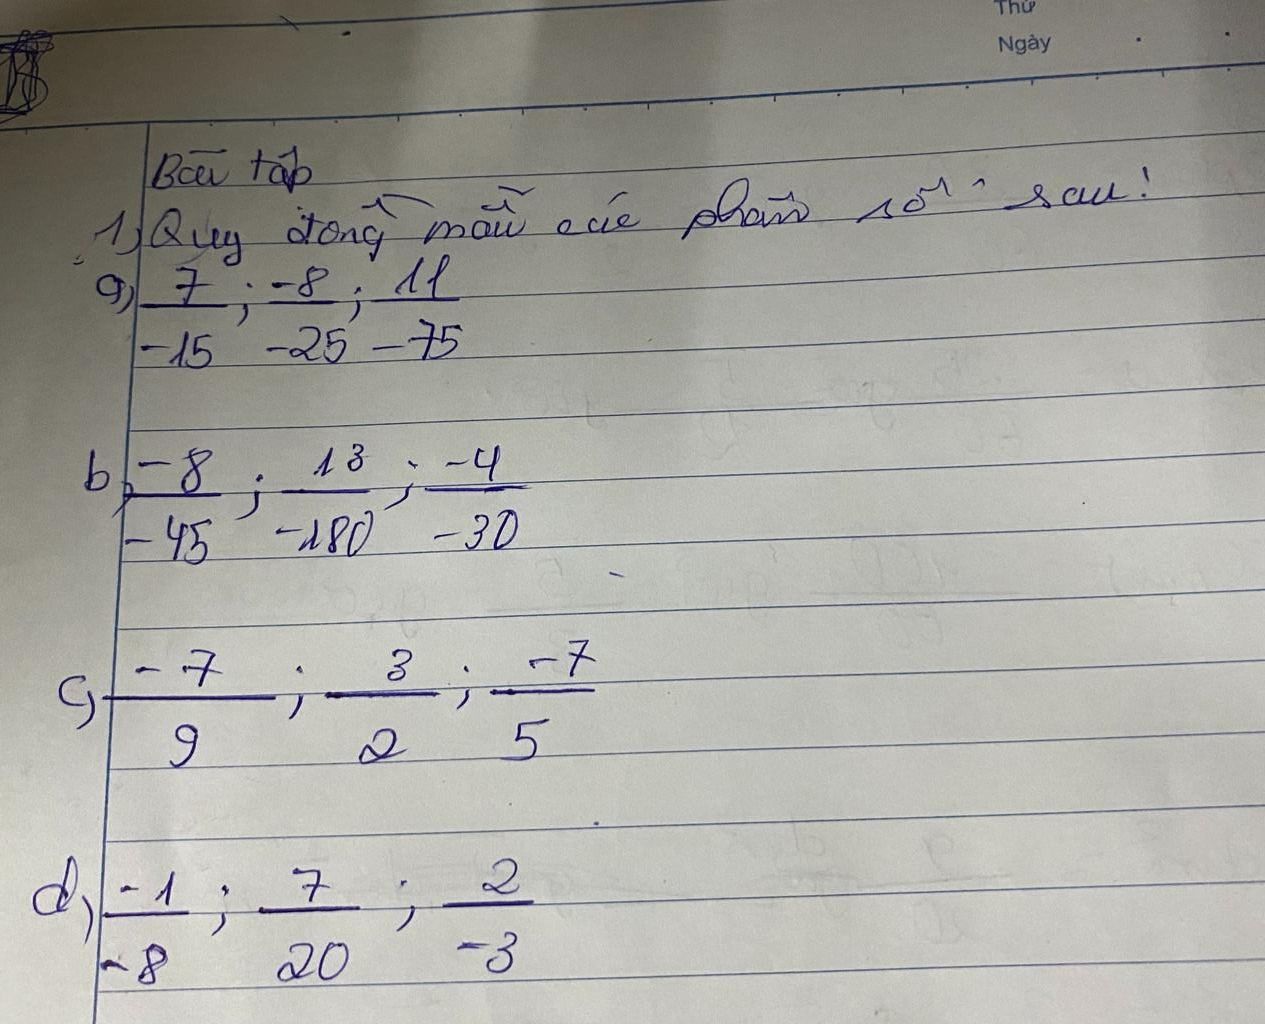 Thứ
Ngày
Bài tập
1) Quy đồng mẫu các phân số sau:
a) 7/-15 ; -8/-25 ; 11/-75
b) -8/-45 ; 13/-180 ; -4/-30
c) -7/9 ; 3/2 ; -7/5
d) -1/-8 ; 7/20 ; 2/-3